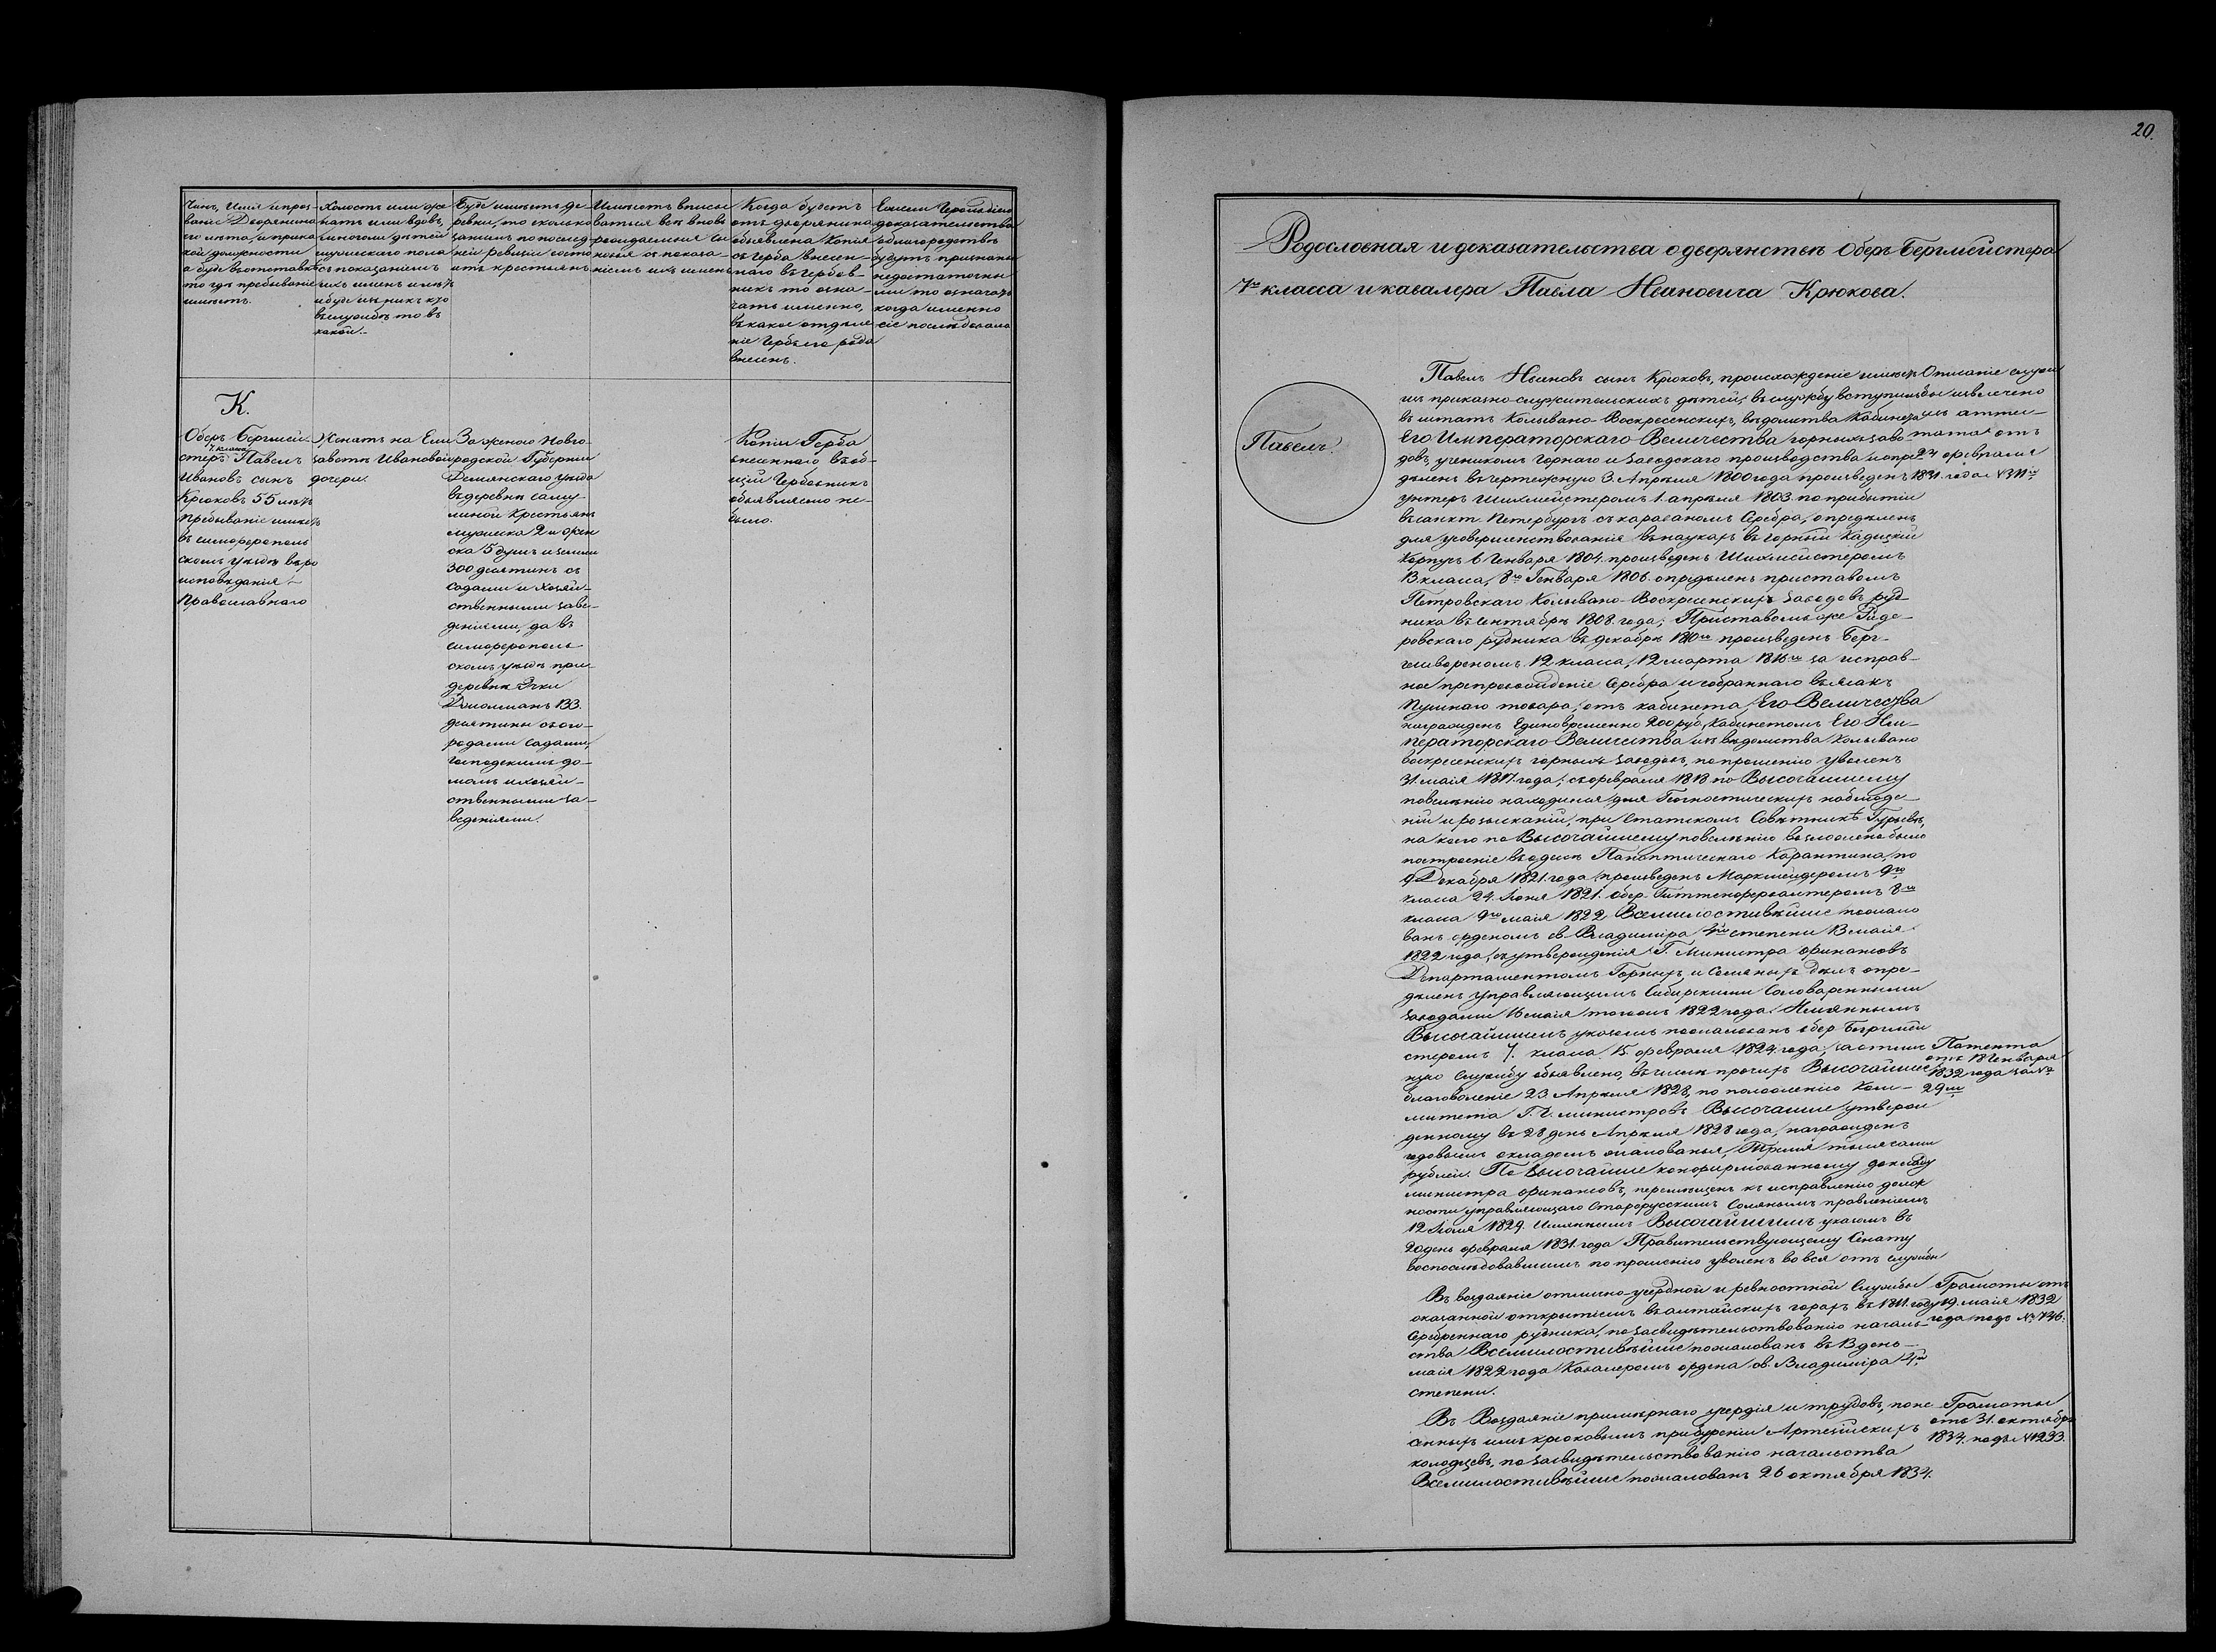 Чинъ, Имя и проз-
ваніе Дворянина
его лѣта, и при ка
кой должности
а буде въ отставкѣ
то гдѣ пребываніе
имѣетъ.
Холостъ или же
натъ или вдовъ,
и на комъ дѣтей
мужескаго пола
съ показаніемъ
ихъ именъ и лѣтъ
и буде изъ нихъ кто
въ службѣ то въ
какой.
Буде имѣетъ де-
ревни, то сколько
за нимъ по послѣд-
ней ревизіи состо
итъ крестьянъ
Имѣетъ вписы
ваться всѣ вновь
рождаемыя
съ показа-
ніемъ ихъ именъ
Когда будетъ
отъ дворянина
объявлена Копія
съ герба внесен-
наго въ гербов-
никъ то озна-
чать именно,
въ какое отдѣле
ніе Гербъ его рода
внесенъ.
Если Герольдіею
доказательства
о благородствѣ
будутъ признаны
недостаточны
ми то означать
когда именно
сіе послѣдовало
К.
Оберъ Бергмей-
7 класса
стеръ Павелъ
Ивановъ сынъ
Крюковъ 55 лѣтъ
пребываніе имѣетъ
въ симферополь
скомъ уѣздѣ вѣро
исповѣданія
Православнаго
Женатъ на Ели
заветѣ Ивановой
дочери.
За женою Новго-
родской Губерніи
Демянскаго уѣзда
въ деревнѣ
крестьянъ
мужеска 2 и жен
ска 5 душъ и земли
300 десятинъ съ
садами и хозяй-
ственными заве-
деніями, да въ
симферополь
скомъ уѣздѣ при
деревнѣ Эски
Джолманъ 133.
десятины съ ого-
родами садами,
господскимъ до-
момъ и хозяй-
ственными за-
веденіями.
Копіи Герба
внесеннаго въ об-
щій Гербовникъ
объявляемо не-
было.
20.
Родословная и доказательства о дворянствѣ Оберъ Бергмейстера
7го класса и кавалера Павла Ивановича Крюкова.
Павелъ.
Павелъ Ивановъ сынъ Крюковъ, происхожденіе имѣетъ
изъ приказно-служительскихъ дѣтей, въ службу вступилъ
въ штатъ Колывано-Воскресенскихъ, вѣдомства Кабинета
Его Императорскаго Величества горныхъ заво
довъ, ученикомъ горнаго и заводскаго производства и опре
дѣленъ въ чертежную 3. Апрѣля 1800 года произведенъ
унтеръ Шихмейстеромъ 1. апрѣля 1803. по прибытіи
въ санкт. Петербургъ съ караваномъ Серебра, опредѣленъ
для усовершенствованія въ наукахъ въ горный Кадецкій
Корпусъ 6 Генваря 1804. произведенъ Шихмейстеромъ
13 класса, 8го Генваря 1806. опредѣленъ приставомъ
Петровскаго Колывано-Воскресенскихъ заводовъ руд
ника въ Сентябрѣ 1808. года; Приставомъ же
рудника въ декабрѣ произведенъ Берг-
гешвореномъ 12 класса, 12 марта за исправ-
ное препровожденіе Серебра и собраннаго въ ясакъ
Пушнаго товара, отъ кабинета Его Величества
награжденъ Единовременно 200 руб, Кабинетомъ Его Им-
ператорскаго Величества изъ вѣдомства Колывано
воскресенскихъ горныхъ заводовъ, по прошенію уволенъ
31. маія 1817. года; съ февраля 1818 по Высочайшему
повелѣнію находился для Геогностическихъ наблюде-
ній и розысканій, при Статскомъ Совѣтникѣ Гурьевѣ,
на коего по Высочайшему повелѣнію возложено было
построеніе въ одессѣ Паноптическаго Карантина, по
9 Декабря 1821. года; произведенъ Маркшейдеромъ 9го
класса 24. Іюня 1821. Обер. Гиттенфервалтеромъ 8го
класса 9го маія 1822 Всемилостивѣйше пожало
ванъ орденомъ св. Владиміра 4й степени 13 маія
1822 года, съ утвержденія Г. Министра финансовъ
Департаментомъ Горныхъ и Соляныхъ дѣлъ опре-
дѣленъ управляющимъ Сибирскими Соловаренными
заводами 16 маія тогожъ 1822 года. Имяннымъ
Высочайшимъ указомъ пожалованъ обер Бергмей
стеромъ 7. класса 15. февраля 1824. года; за отлич
ную службу объявлено, въ числѣ прочихъ Высочайшее
благоволеніе 23 Апрѣля 1828, по положенію Ком-
митета Г. Г. министровъ Высочайше утверж
денному въ 28 день Апрѣля 1828 года, награжденъ
годовымъ окладомъ жалованья, Тремя тысячами
рублей. По Высочайше конфирмованному докладу
министра финансовъ, перемѣщенъ къ исправленію долж
ности управляющаго Старорусскимъ Солянымъ правленіемъ
12 Іюля 1829. Имяннымъ Высочайшимъ указомъ въ
20 день февраля 1831. года Правительствующему Сенату
воспослѣдовавшимъ по прошенію уволенъ вовся отъ службы
Описаніе служ
бы извлечено
изъ аттес-
тата отъ
24 февраля
1831. года
Патента
отъ 18 Генваря
1832 года за №
29м
Въ воздаяніе отлично-усердной и ревностной Службы
оказанной открытіемъ въ алтайскихъ горахъ въ 1811. году
Серебреннаго рудника, по засвидѣтельствованію началь-
ства Всемилостивѣйше пожалованъ въ 13 день
маія 1822 года Кавалеромъ ордена св. Владиміра 4й
степени.
Грамоты отъ
19. маія 1832
года подъ № 746.
Въ Воздаяніе примѣрнаго усердія и трудовъ, поне
сенныхъ имъ крюковымъ при буреніи Артезійскихъ
колодцевъ, по засвидѣтельствованію начальства
Всемилостивѣйше пожалованъ 26 октября 1834.
Грамоты
отъ 31. октября
1834. подъ № 1233.